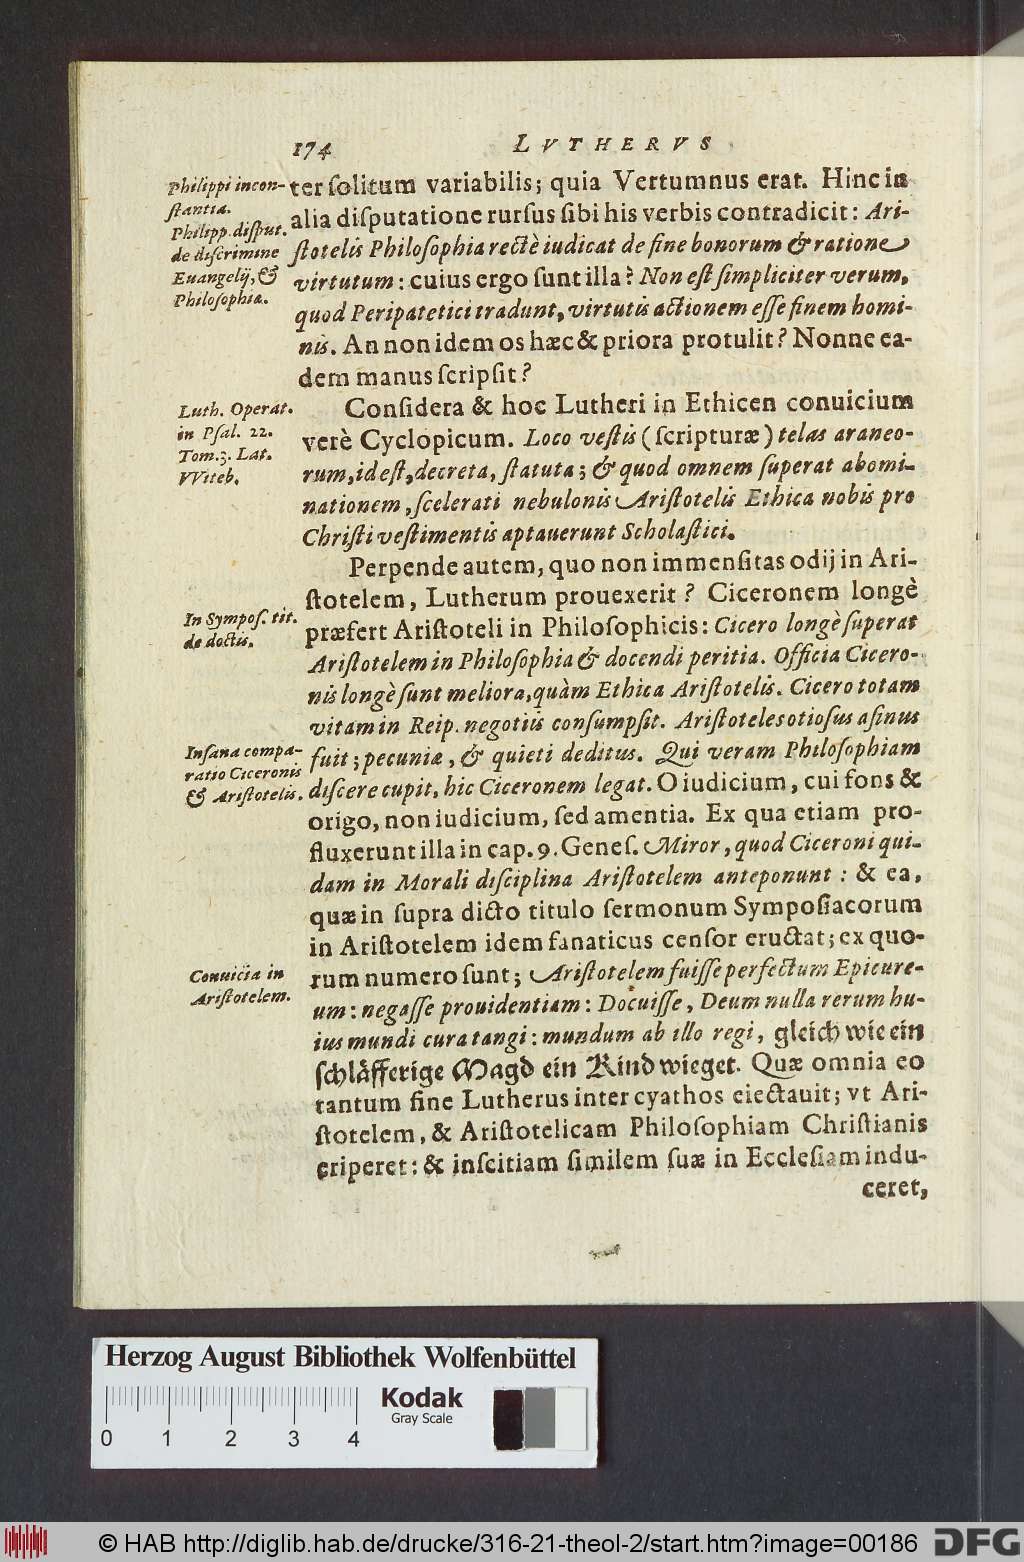 174 LVTHERVS
Philippi incon-
stantia.
Philipp. disput.
de discrimine
Euangelij, &
Philosophiæ.
ter solitum variabilis; quia Vertumnus erat. Hinc in
alia disputatione rursus sibi his verbis contradicit: Ari-
stotelis Philosophia rectè iudicat de fine bonorum & ratione
virtutum: cuius ergo sunt illa? Non est simpliciter verum,
quod Peripatetici tradunt, virtutis actionem esse finem homi-
nis. An non idem os hæc & priora protulit? Nonne ea-
dem manus scripsit?
Luth. Operat.
in Psal. 22.
Tom. 3. Lat.
VViteb.
Considera & hoc Lutheri in Ethicen conuicium
verè Cyclopicum. Loco vestis (scripturæ) telas araneo-
rum, id est, decreta, statuta; & quod omnem superat abomi-
nationem, scelerati nebulonis Aristotelis Ethica nobis pro
Christi vestimentis aptauerunt Scholastici.
Perpende autem, quo non immensitas odij in Ari-
stotelem, Lutherum prouexerit? Ciceronem longè
In Sympos. tit.
de doctis.
præfert Aristoteli in Philosophicis: Cicero longè superat
Aristotelem in Philosophia & docendi peritia. Officia Cicero-
nis longè sunt meliora, quàm Ethica Aristotelis. Cicero totam
vitam in Reip. negotiis consumpsit. Aristoteles otiosus asinus
Insana compa-
ratio Ciceronis
& Aristotelis.
fuit; pecuniæ, & quieti deditus. Qui veram Philosophiam
discere cupit, hic Ciceronem legat. O iudicium, cui fons &
origo, non iudicium, sed amentia. Ex qua etiam pro-
fluxerunt illa in cap. 9. Genes. Miror, quod Ciceroni qui-
dam in Morali disciplina Aristotelem anteponunt: & ea,
quæ in supra dicto titulo sermonum Symposiacorum
in Aristotelem idem fanaticus censor eructat; ex quo-
Conuicia in
Aristotelem.
rum numero sunt; Aristotelem fuisse perfectum Epicure-
um: negasse prouidentiam: Docuisse, Deum nulla rerum hu-
ius mundi cura tangi: mundum ab illo regi, gleich wie ein
schläfferige Magd ein Kind wieget. Quæ omnia eo
tantum fine Lutherus inter cyathos eiectauit; vt Ari-
stotelem, & Aristotelicam Philosophiam Christianis
eriperet: & inscitiam similem suæ in Ecclesiam indu-
ceret,
Herzog August Bibliothek Wolfenbüttel
Kodak
Gray Scale
0 1 2 3 4
© HAB http://diglib.hab.de/drucke/316-21-theol-2/start.htm?image=00186
DFG